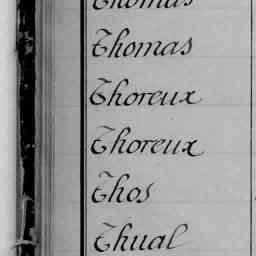 Thomas
Thomas
Thoreux
Thoreux
Thos
Thual